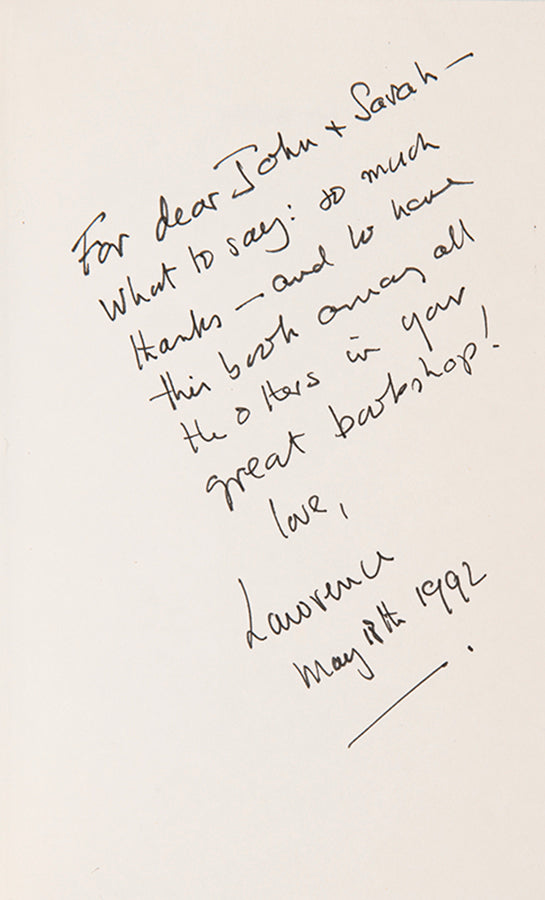 For dear John + Sarah —
What to say: so much
thanks — and to have
this book among all
the others in your
great bookshop!
love,
Lawrence
May 18th 1992.